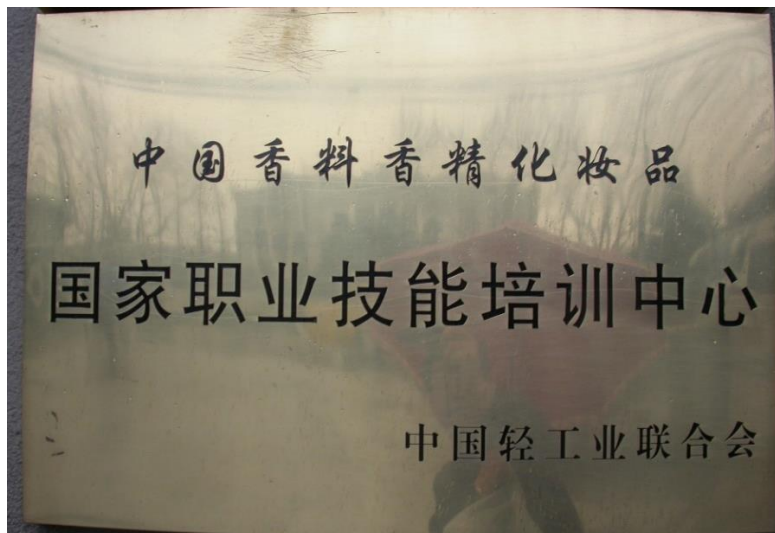 中国香料香精化妆品
国家职业技能培训中心
中国轻工业联合会